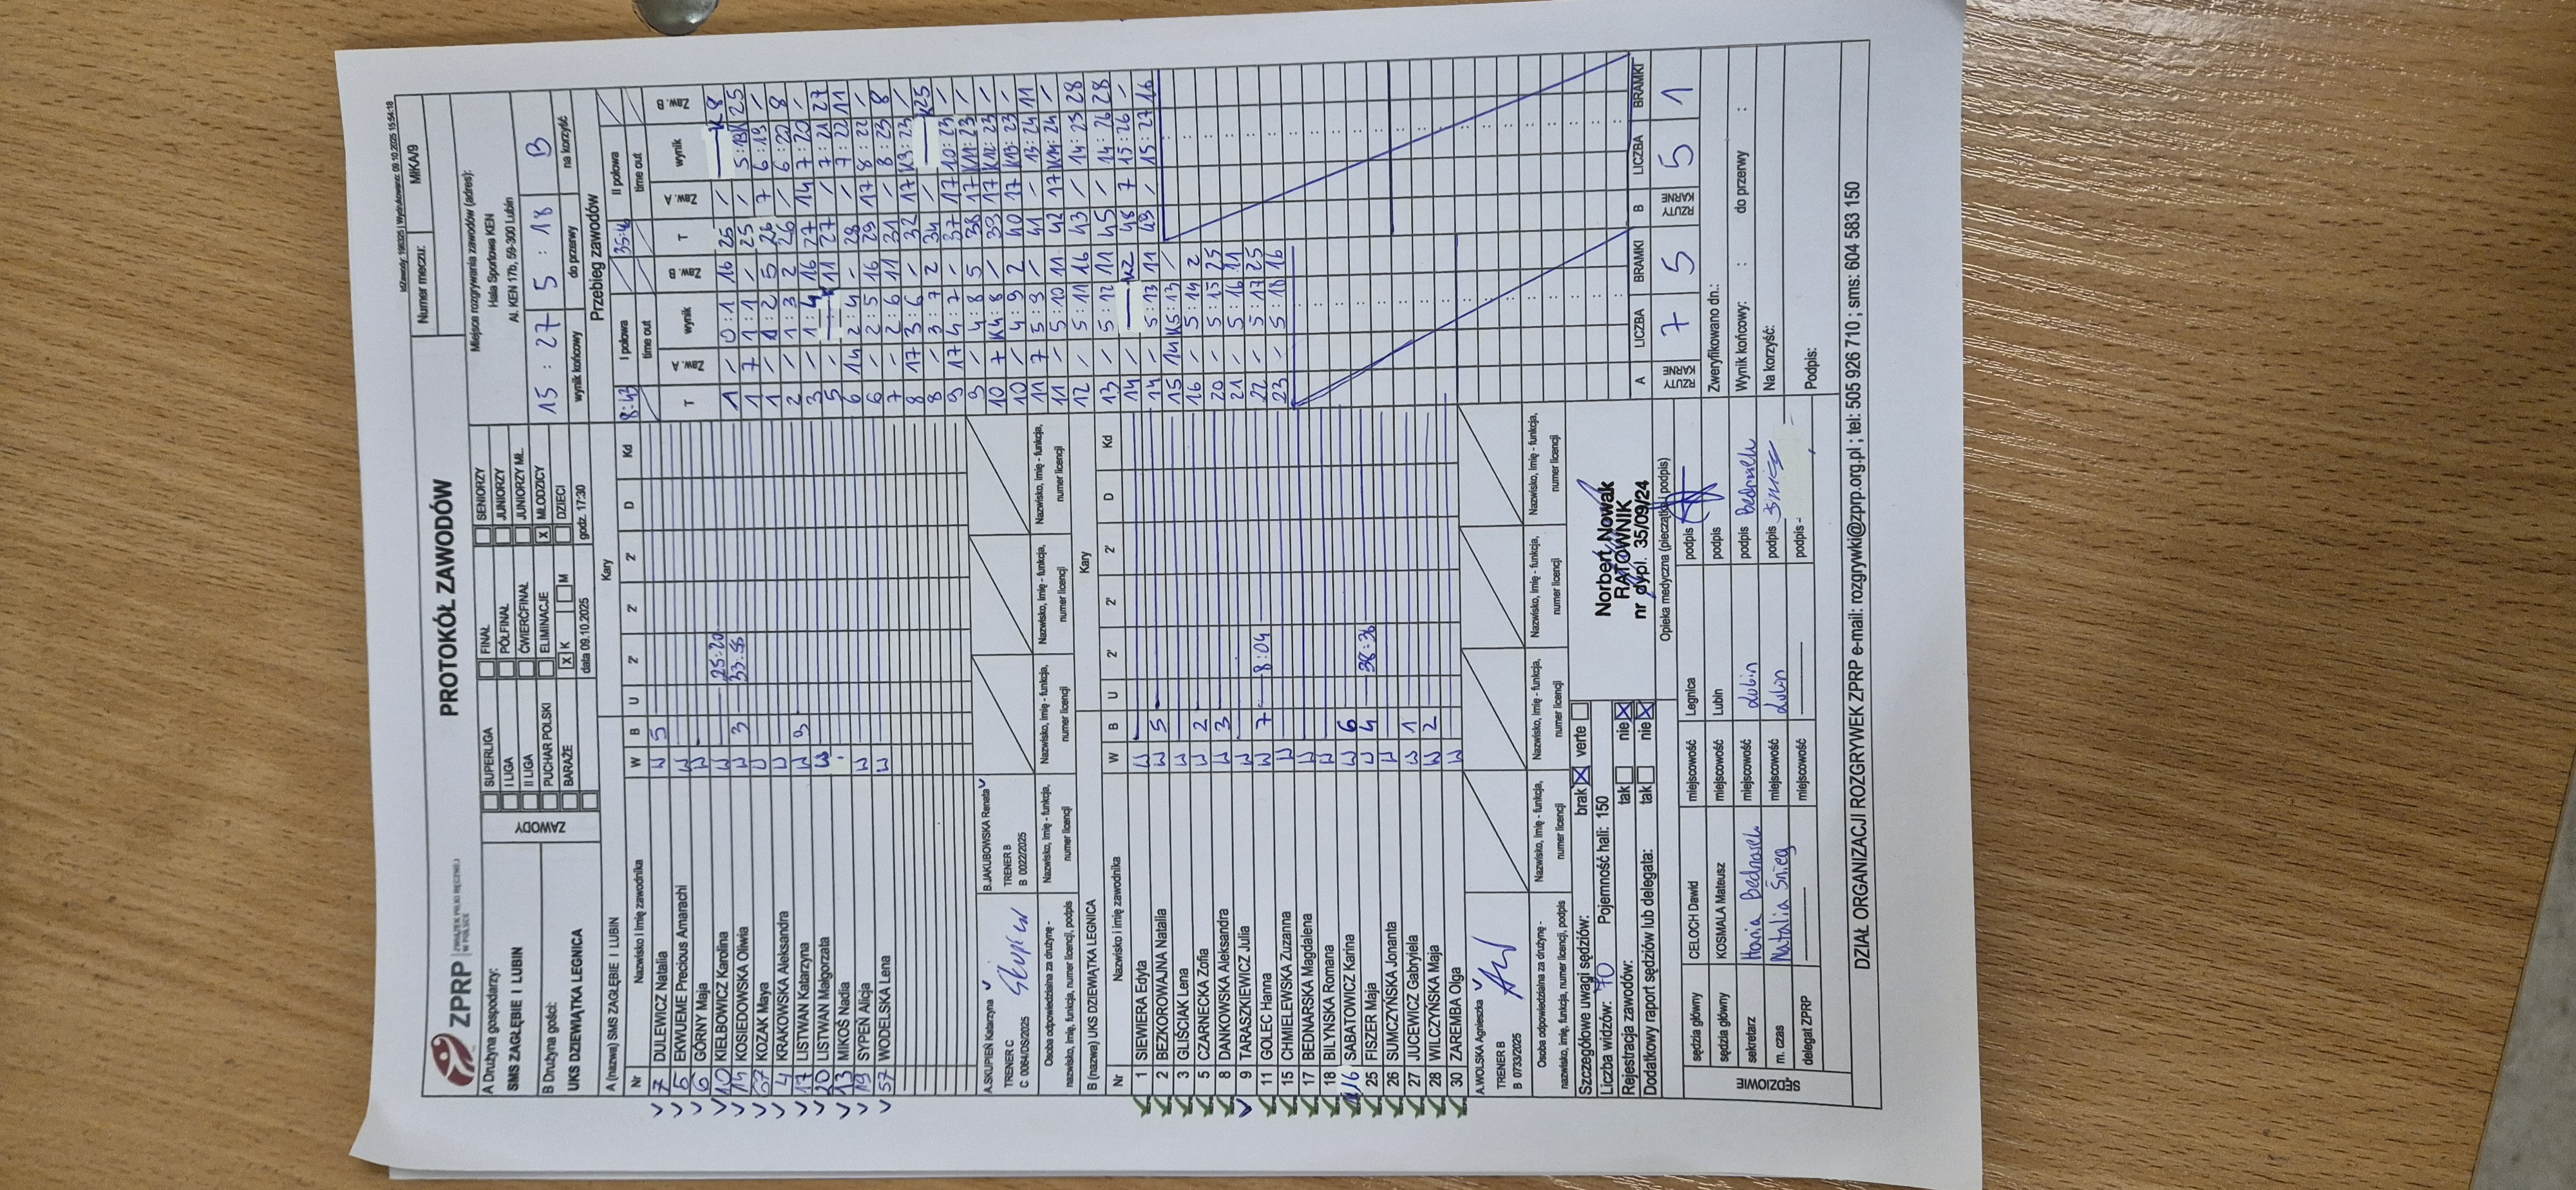 IdZawody: 198325 | Wydrukowano: 09.10.2025 15:54:18
PROTOKÓŁ ZAWODÓW
Numer meczu: MIKA/9
ZPRP ZWIĄZEK PIŁKI RĘCZNEJ W POLSCE
A Drużyna gospodarzy:
SMS ZAGŁĘBIE I LUBIN
B Drużyna gości:
UKS DZIEWIĄTKA LEGNICA
ZAWODY
SUPERLIGA
I LIGA
II LIGA
PUCHAR POLSKI
BARAŻE
FINAŁ
PÓŁFINAŁ
ĆWIERĆFINAŁ
ELIMINACJE
X K M
SENIORZY
JUNIORZY
JUNIORZY MŁ.
X MŁODZICY
DZIECI
data 09.10.2025 godz. 17:30
Miejsce rozgrywania zawodów (adres):
Hala Sportowa KEN
Al. KEN 17b, 59-300 Lubin
15 : 27 5 : 18 B
wynik końcowy do przerwy na korzyść
A (nazwa) SMS ZAGŁĘBIE I LUBIN Kary
Nr Nazwisko i imię zawodnika W B U 2' 2' 2' D Kd
7 DULEWICZ Natalia W 5
5 EKWUEME Precious Amarachi W
6 GÓRNY Maja W
10 KIEŁBOWICZ Karolina W 25:20
14 KOSIEDOWSKA Oliwia W 3 33:55
67 KOZAK Maya W
4 KRAKOWSKA Aleksandra W
17 LISTWAN Katarzyna W 3
20 LISTWAN Małgorzata W
13 MIKOŚ Nadia
19 SYPEŃ Alicja W
57 WODELSKA Lena W
A.SKUPIEŃ Katarzyna
TRENER C
C 0064/DS/2025
B.JAKUBOWSKA Renata
TRENER B
B 0022/2025
Osoba odpowiedzialna za drużynę -
nazwisko, imię, funkcja, numer licencji, podpis
Nazwisko, imię - funkcja,
numer licencji
Nazwisko, imię - funkcja,
numer licencji
Nazwisko, imię - funkcja,
numer licencji
Nazwisko, imię - funkcja,
numer licencji
B (nazwa) UKS DZIEWIĄTKA LEGNICA Kary
Nr Nazwisko i imię zawodnika W B U 2' 2' 2' D Kd
1 SIEWIERA Edyta W
2 BEZKOROWAJNA Natalia W 5
3 GLIŚCIAK Lena W
5 CZARNECKA Zofia W 2
8 DANKOWSKA Aleksandra W 3
9 TARASZKIEWICZ Julia W
11 GOLEC Hanna W 7 8:04
15 CHMIELEWSKA Zuzanna W
17 BEDNARSKA Magdalena W
18 BILYNSKA Romana W
16 SABATOWICZ Karina W 6
25 FISZER Maja W 4 38:36
26 SUMCZYŃSKA Jonanta W
27 JUCEWICZ Gabryiela W 1
28 WILCZYŃSKA Maja W 2
30 ZAREMBA Olga W
A.WOLSKA Agnieszka
TRENER B
B 0733/2025
Osoba odpowiedzialna za drużynę -
nazwisko, imię, funkcja, numer licencji, podpis
Nazwisko, imię - funkcja,
numer licencji
Nazwisko, imię - funkcja,
numer licencji
Nazwisko, imię - funkcja,
numer licencji
Nazwisko, imię - funkcja,
numer licencji
Szczegółowe uwagi sędziów: brak X verte
Liczba widzów: 70 Pojemność hali: 150
Rejestracja zawodów: tak nie X
Dodatkowy raport sędziów lub delegata: tak nie X
Norbert Nowak
RATOWNIK
nr dypl. 35/09/24
Opieka medyczna (pieczątka i podpis)
SĘDZIOWIE
sędzia główny CELOCH Dawid miejscowość Legnica podpis
sędzia główny KOSMALA Mateusz miejscowość Lubin podpis
sekretarz Hania Bednarek miejscowość Lubin podpis Bednarek
m. czas Natalia Śnieg miejscowość Lubin podpis Śnieg
delegat ZPRP miejscowość podpis -
Przebieg zawodów
8:43 I połowa 35:46 II połowa
time out time out
T Zaw. A wynik Zaw. B T Zaw. A wynik Zaw. B
1 / 0:1 16 25 / K 8
1 7 1:1 / 25 / 5:19K 25
1 / 1:2 5 26 7 6:19 /
2 / 1:3 2 26 / 6:20 8
3 / 1:4 16 27 14 7:20 /
5 / 11 27 / 7:21 27
6 14 2:4 / 28 / 7:22 11
6 / 2:5 16 29 17 8:22 /
7 / 2:6 11 31 / 8:23 8
8 17 3:6 / 32 17 K9:23 /
8 / 3:7 2 34 / K25
9 17 4:7 / 37 17 10:23 /
9 / 4:8 5 38 17 K11:23 /
10 7 K4:8 / 39 17 K12:23 /
10 / 4:9 2 40 17 K13:23 /
11 7 5:9 / 41 / 13:24 11
11 / 5:10 11 42 17 K14:24 /
12 / 5:11 16 43 / 14:25 28
13 / 5:12 11 45 / 14:26 28
14 / K2 48 7 15:26 /
14 / 5:13 11 49 / 15:27 16
15 14 K5:13 /
16 / 5:14 2
20 / 5:15 25
21 / 5:16 11
22 / 5:17 25
23 / 5:18 16
RZUTY KARNE A LICZBA BRAMKI RZUTY KARNE B LICZBA BRAMKI
7 5 5 1
Zweryfikowano dn.:
Wynik końcowy: : do przerwy :
Na korzyść:
Podpis:
DZIAŁ ORGANIZACJI ROZGRYWEK ZPRP e-mail: rozgrywki@zprp.org.pl ; tel: 505 926 710 ; sms: 604 583 150